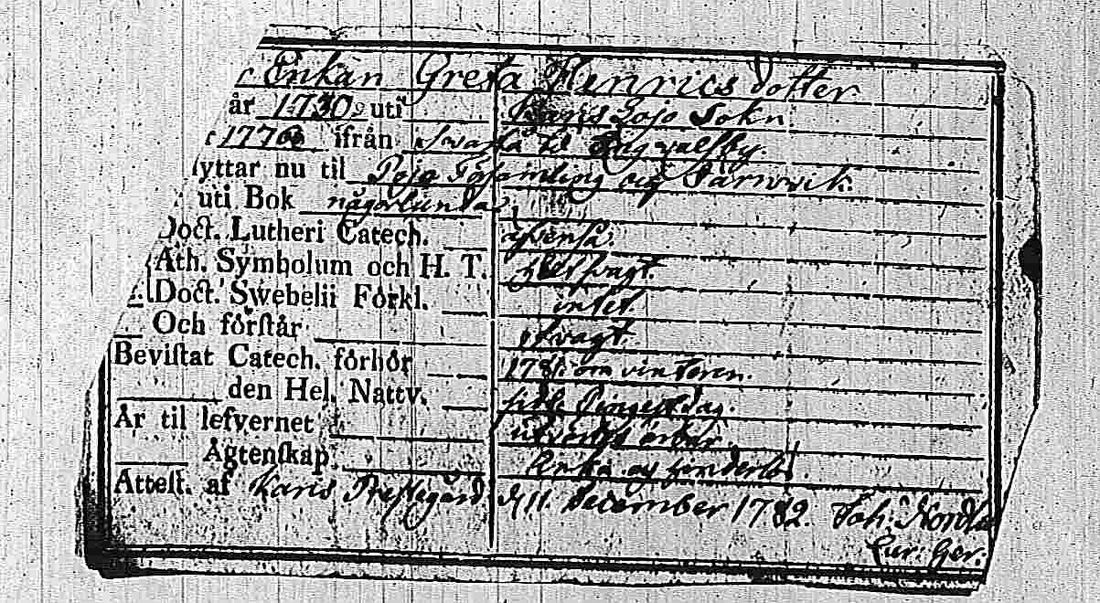 Enkan Greta Henrics Dotter
år 1730 uti Karis Lojo Sokn
1776 ifrån Svarta til Ragvalsby.
lyttar nu til Pojo Församling och
uti Bok någorlunda
Doct. Lutheri Catech. äfvenså.
Ath. Symbolum och H. T. svagt.
Doct. Swebelii Förkl. intet.
Och förſtår svagt.
Beviſtat Catech. förhör 1781 om vinteren.
den Hel. Nattv. sidl. Pingestdag.
År til lefvernet utvertes ärbar
Ägtenſkap Enka
Atteſt. af Karis Prestegård d. 11. December 1782. Joh. Nordl
Cur: Ger: